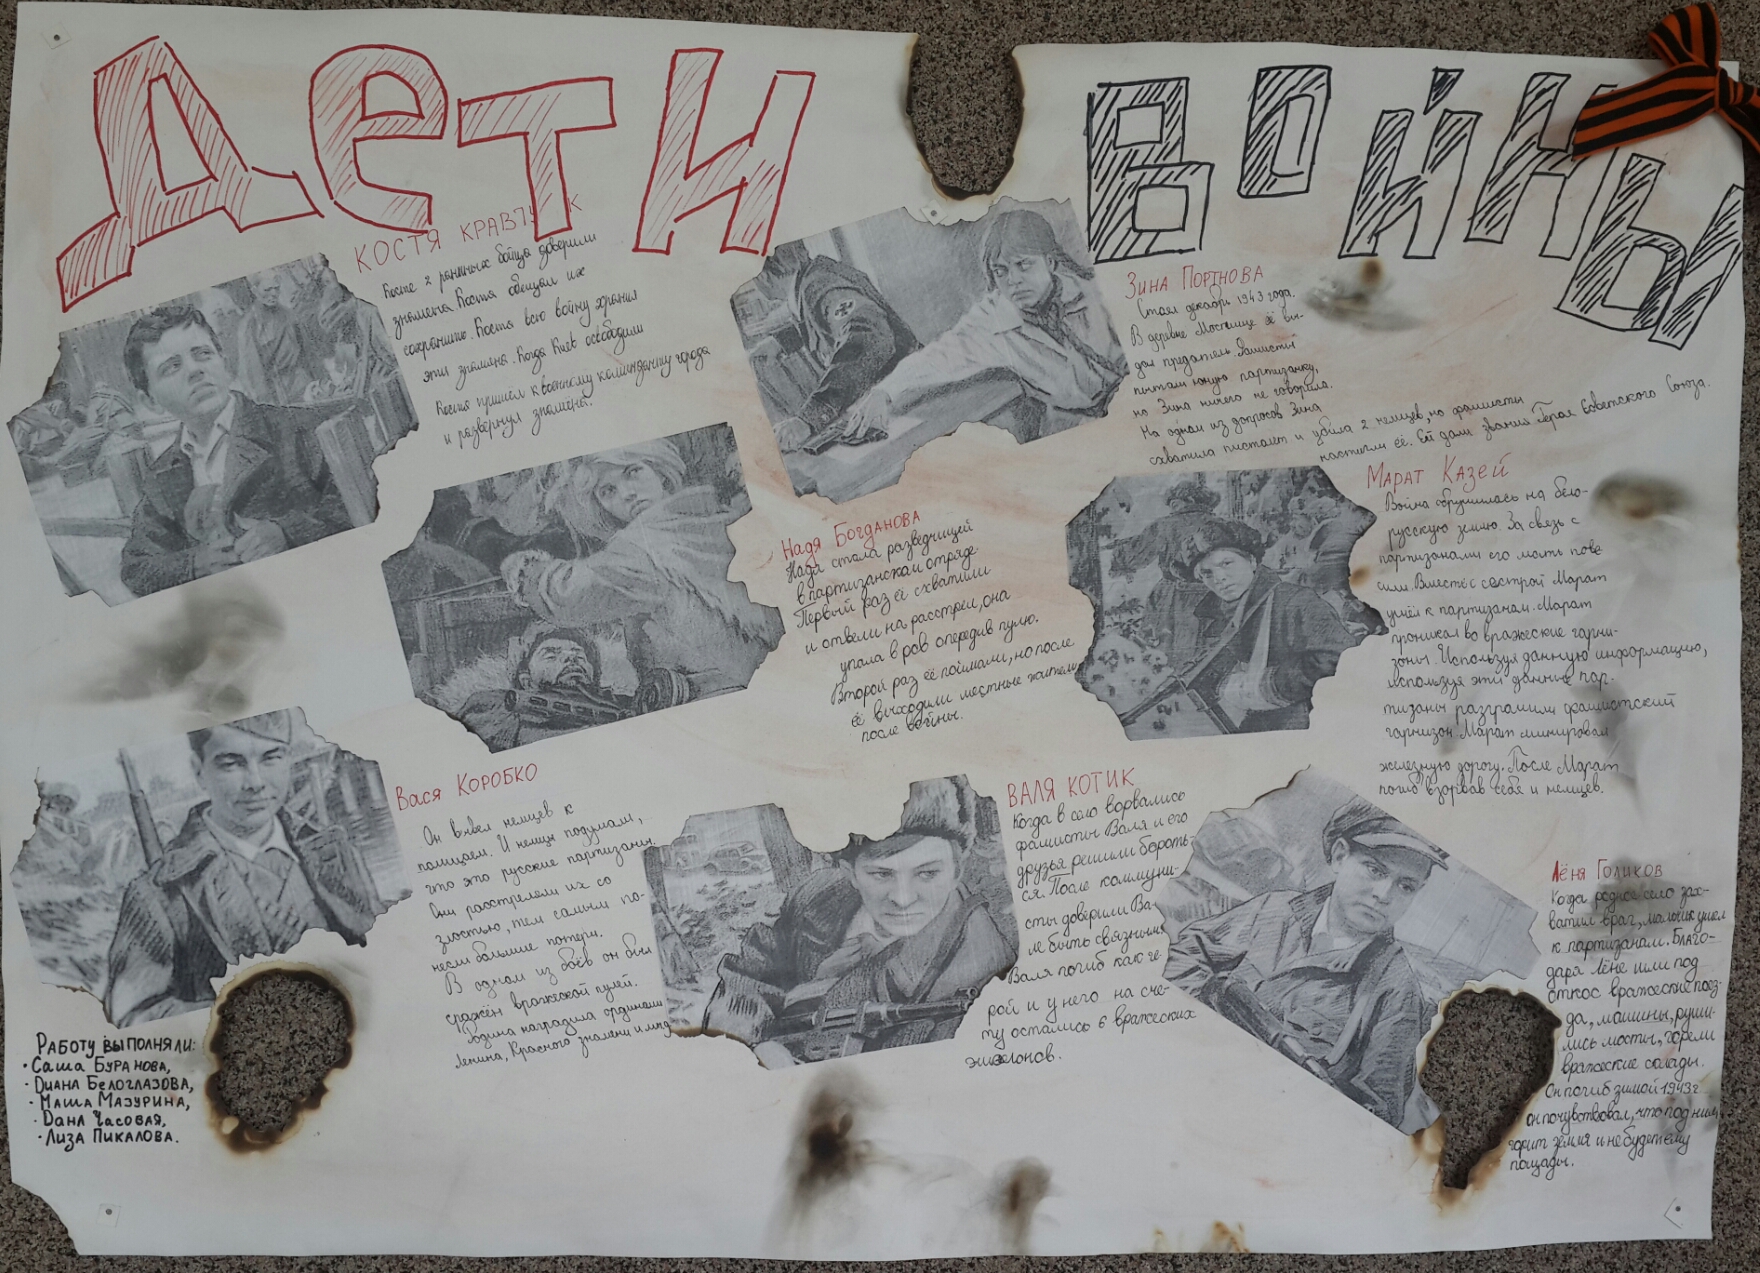 Дети войны
Костя Кравчук
Косте 2 раненых бойца доверили
знамёна. Костя обещал их
сохранить. Костя всю войну хранил
эти знамёна. Когда Киев освободили
Костя пришёл к военному коменданту города
и развернул знамёна.
Зина Портнова
Стоял декабрь 1943 года.
В деревне Мостище её вы-
дал предатель. Фашисты
пытали юную партизанку,
но Зина ничего не говорила.
На одном из допросов Зина
схватила пистолет и убила 2 немцев, но фашисты
настигли её. Ей дали звания Героя Советского Союза.
Надя Богданова
Надя стала разведчицей
в партизанском отряде.
Первый раз её схватили
и отвели на расстрел, она
упала в ров опередив пулю.
Второй раз её поймали, но после
её выходили местные жители
после войны.
Марат Казей
Война обрушилась на бело-
русскую землю. За связь с
партизанами его мать пове-
сили. Вместе с сестрой Марат
ушёл к партизанам. Марат
проникал во вражеские гарни-
зоны. Используя данную информацию,
используя эти данные пар-
тизаны разгромили фашистский
гарнизон. Марат минировал
железную дорогу. После Марат
погиб взорвав себя и немцев.
Вася Коробко
Он вывел немцев к
полицаем. И немцы подумали,
что это русские партизаны.
Они расстреляли их со
злостью, тем самым по-
несли большие потери.
В одном из боёв он был
сражён вражеской пулей.
Родина наградила орденами
Ленина, Красного знамени и
Валя Котик
Когда в село ворвались
фашисты Валя и его
друзья решили бороть-
ся. После коммуни-
сты доверили Ва-
ле быть связным
Валя погиб как ге-
рой и у него на сче-
ту остались 6 вражеских
эшелонов.
Лёня Голиков
Когда родное село зах-
ватил враг, мальчик ушёл
к партизанам. Благо-
даря Лёне шли под
откос вражеские поез-
да, машины, руши-
лись мосты, горели
вражеские склады.
Он погиб зимой 1943 г
он почувствовал, что под ним
горит земля и не будет ему
пощады.
Работу выполняли:
• Саша Буранова,
• Диана Белоглазова,
• Маша Мазурина,
• Дана Часовая,
• Лиза Пикалова.